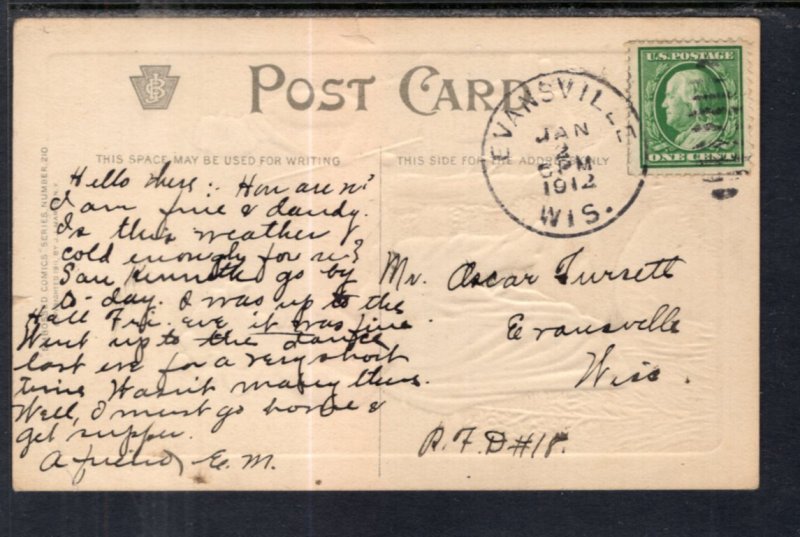 POST CARD
THIS SPACE MAY BE USED FOR WRITING
THIS SIDE FOR THE ADDRESS ONLY
U.S. POSTAGE
ONE CENT
EVANSVILLE
JAN
PM
1912
WIS.
Hello there: How are u?
I am fine & dandy.
Is this weather
cold enough for u?
Saw Kenneth go by
to-day. I was up to the
Hall Fri. eve it was fine.
Went up to the dance
last eve for a very short
time Wasn't many there.
Well, I must go home &
get supper.
A friend, E. M.
Mr. Oscar
Evansville
Wisc.
R.F.D #18.
COMICS" SERIES NUMBER 210